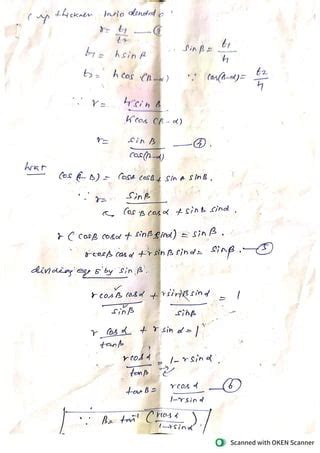 Chip thickness ratio denoted :
r = t₁/t₂ — ③
t₁ = h sin β    sin β = t₁/h
t₂ = h cos (β-α)    ∵ cos(β-α) = t₂/h
∵ r = h sin β / h cos (β-α)
r = sin β / cos(β-α) — ④.
cos (A-B) = cosA cosB + sin A sin B.
∵ r = sin β / cos β cos α + sin β sin α.
r ( cos β cos α + sin β sin α ) = sin β.
r cos β cos α + r sin β sin α = sin β. — ⑤
dividing eqn 5 by sin β.
r cos β cos α / sin β + r sin β sin α / sin β = 1
r cos α / tan β + r sin α = 1
r cos α / tan β = 1 - r sin α
tan β = r cos α / 1 - r sin α — ⑥
∵ β = tan⁻¹ ( r cos α / 1 - r sin α )
Scanned with OKEN Scanner